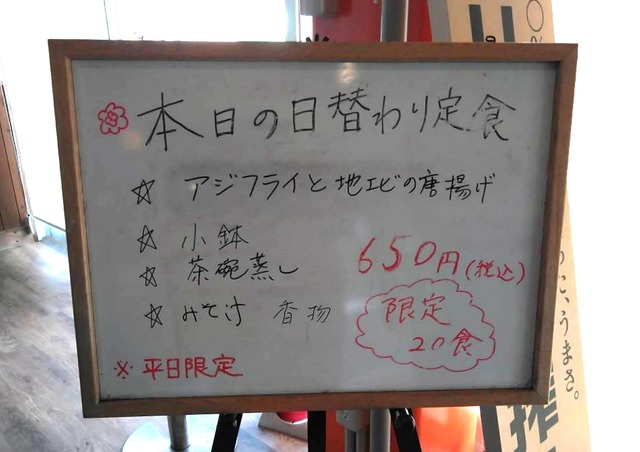 本日の日替わり定食
☆ アジフライと地エビの唐揚げ
☆ 小鉢
☆ 茶碗蒸し
☆ みそ汁 香物
650円(税込)
限定
20食
※平日限定
うまさ。
搾